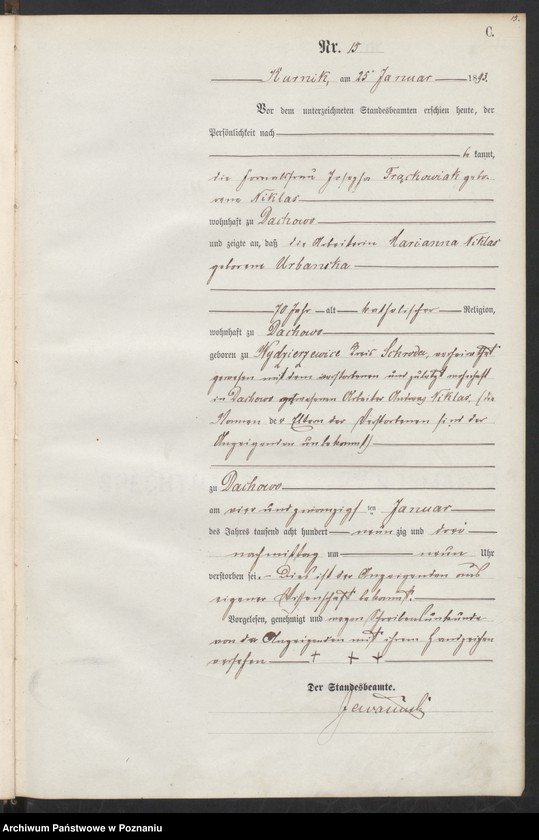 15.
C.
Nr. 15
Kurnik, am 25 Januar 1893.
Vor dem unterzeichneten Standesbeamten erschien heute, der
Persönlichkeit nach
be kannt,
die Josepha Frąckowiak gebo-
rene Niklas
wohnhaft zu Dachowo
und zeigte an, daß die Arbeiterin Marianna Niklas
geborene Urbanska
70 Jahr alt katholischer Religion,
wohnhaft zu Dachowo
geboren zu Wydzierzewice Kreis Schroda, verheirathet
gewesen mit dem verstorbenen und zuletzt wohnhaft
in Dachowo gewesenen Arbeiter Niklas, (die
Namen der Eltern der Verstorbenen sind der
Anzeigenden unbekannt)
zu Dachowo
am vier und zwanzigsten Januar
des Jahres tausend acht hundert neun zig und drei
nachmittag um neun Uhr
verstorben sei. – Dies ist der Anzeigenden aus
eigener Wissenschaft bekannt.
Vorgelesen, genehmigt und wegen Schreibensunkunde
von der Anzeigenden mit ihrem Handzeichen
versehen + + +
Der Standesbeamte.
Archiwum Państwowe w Poznaniu